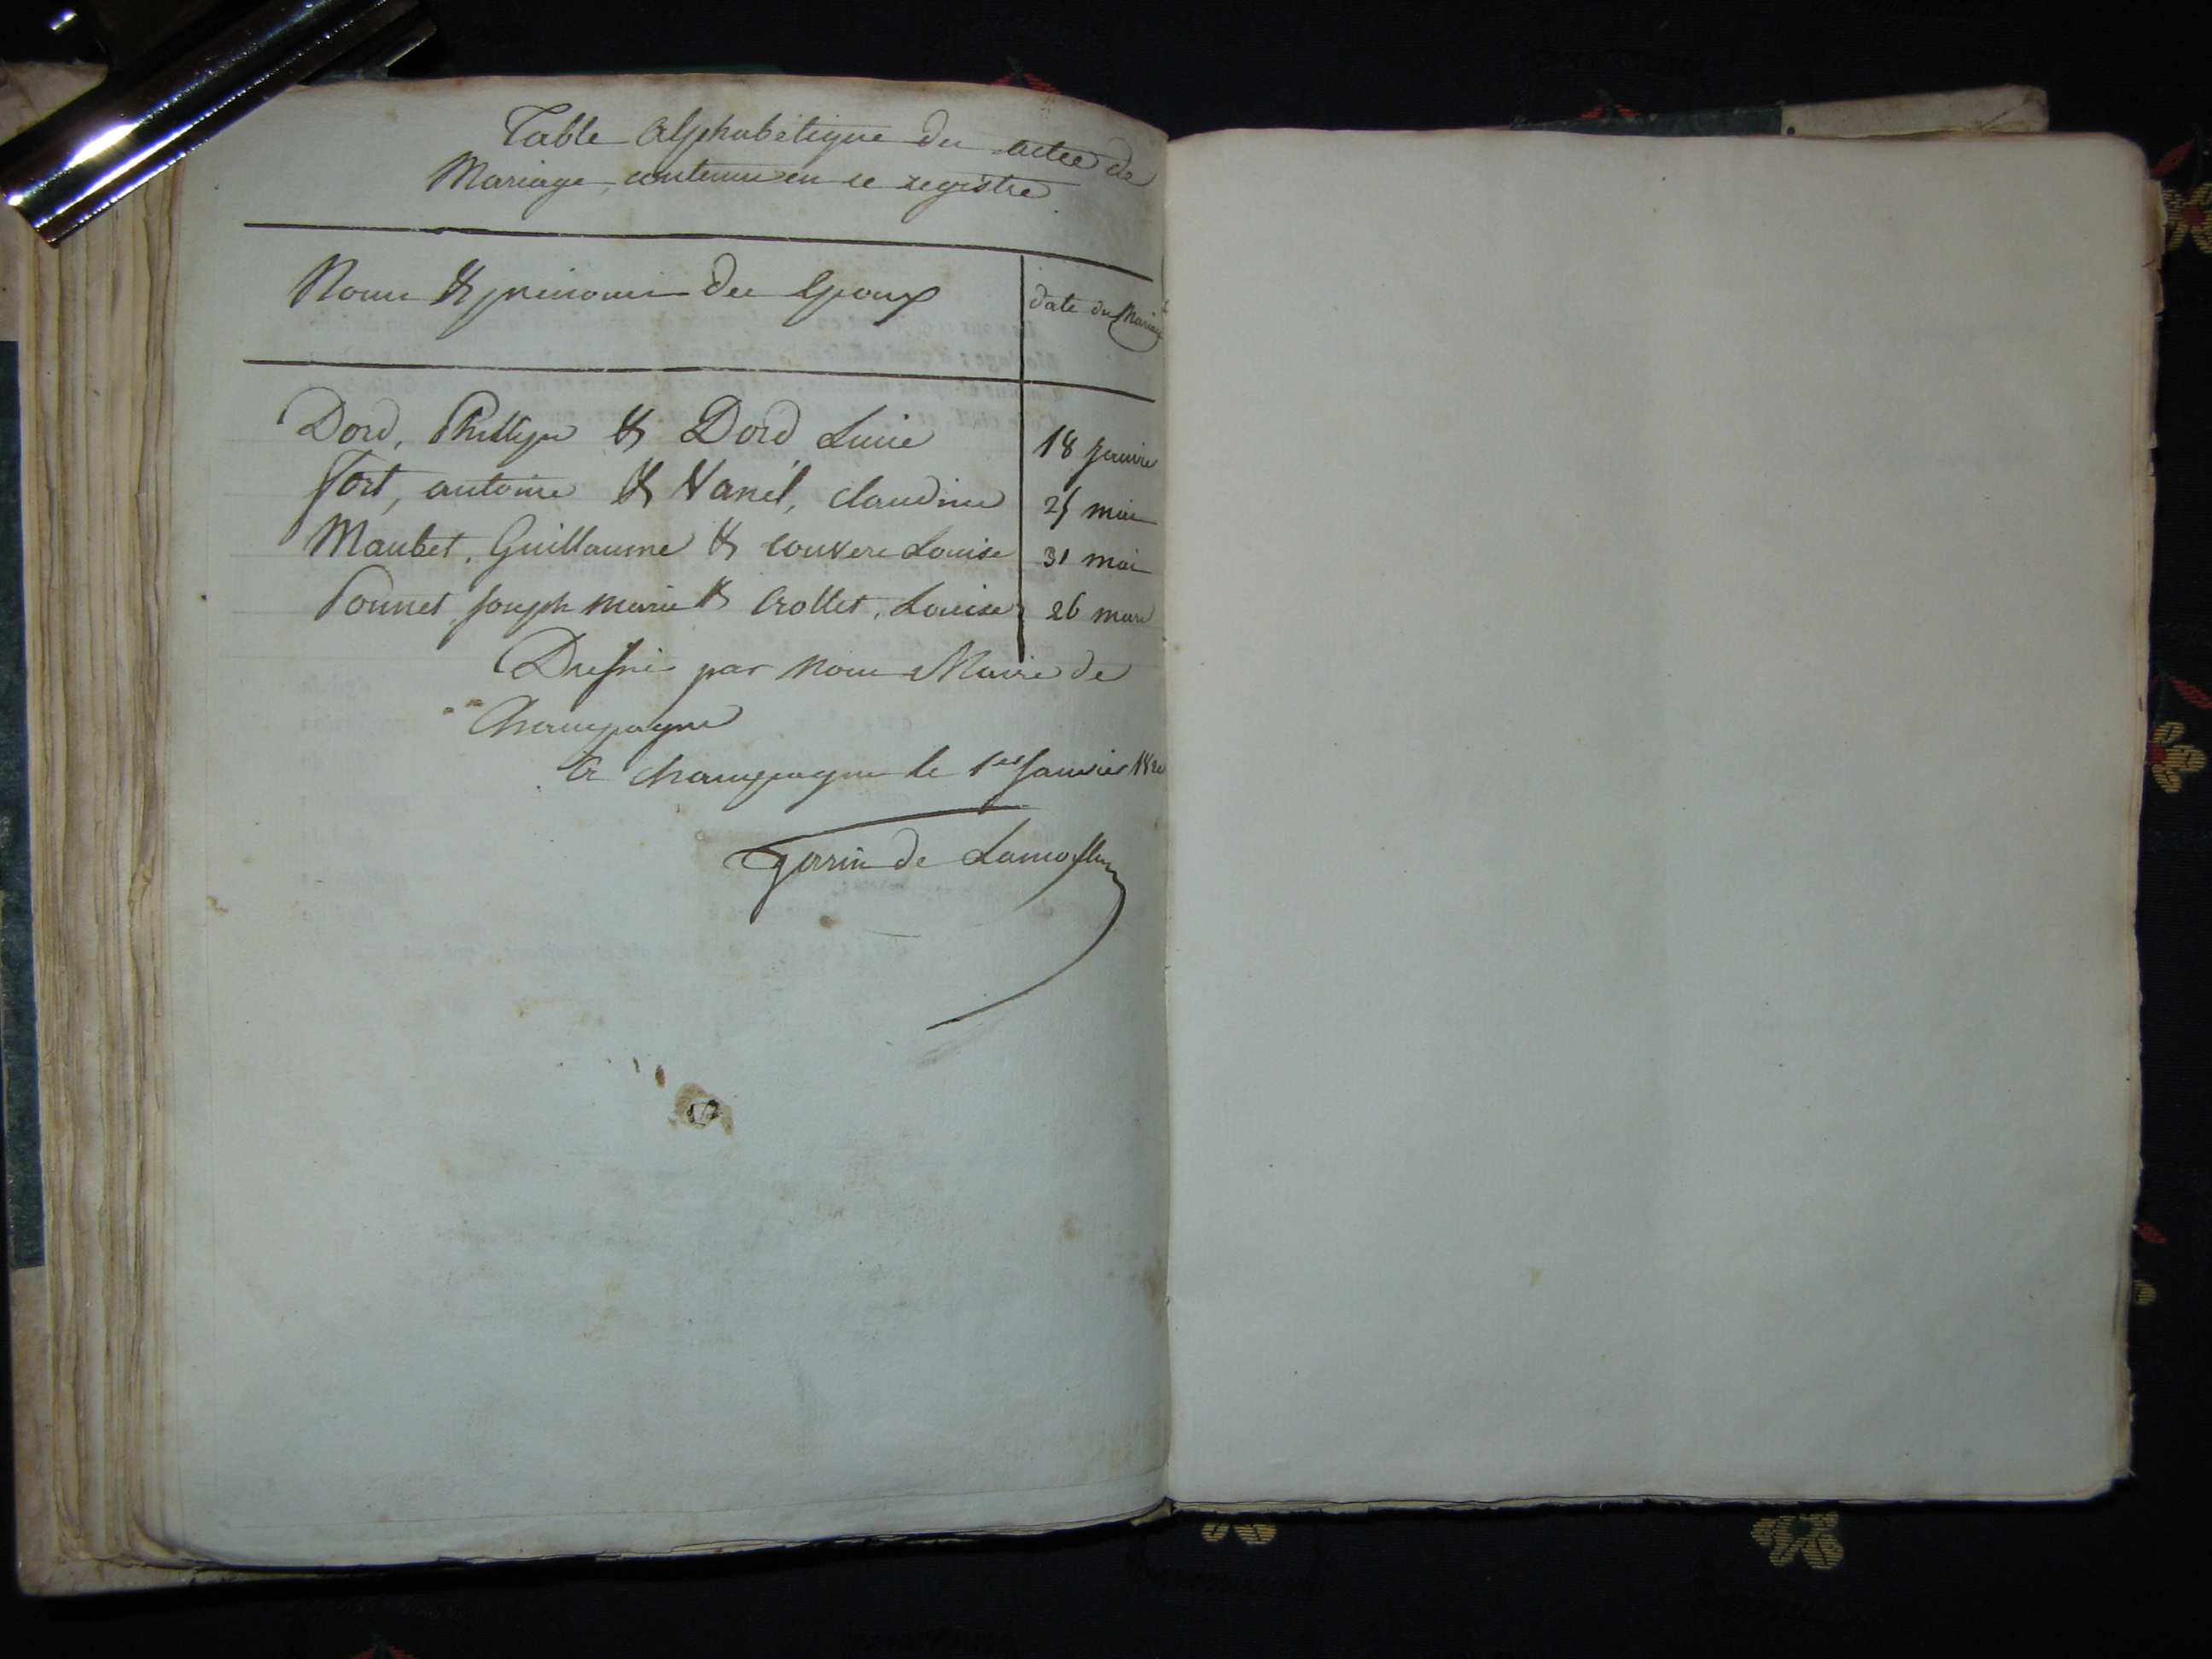 Table Alphabétique des actes de
Mariage, contenus en ce registre.
Noms & prénoms des Epoux
date du Mariage
Dord, Phillipe & Dord Lucie
18 Janvier
Fort, antoine & Vanel, claudine
25 mai
Maubet, Guillaume & Louise
31 mai
Ponnet, Joseph Marie & Crollet, Louise
26 mars
Dressé par nous Maire de
Champagne
A champagne le 1er Janvier
de